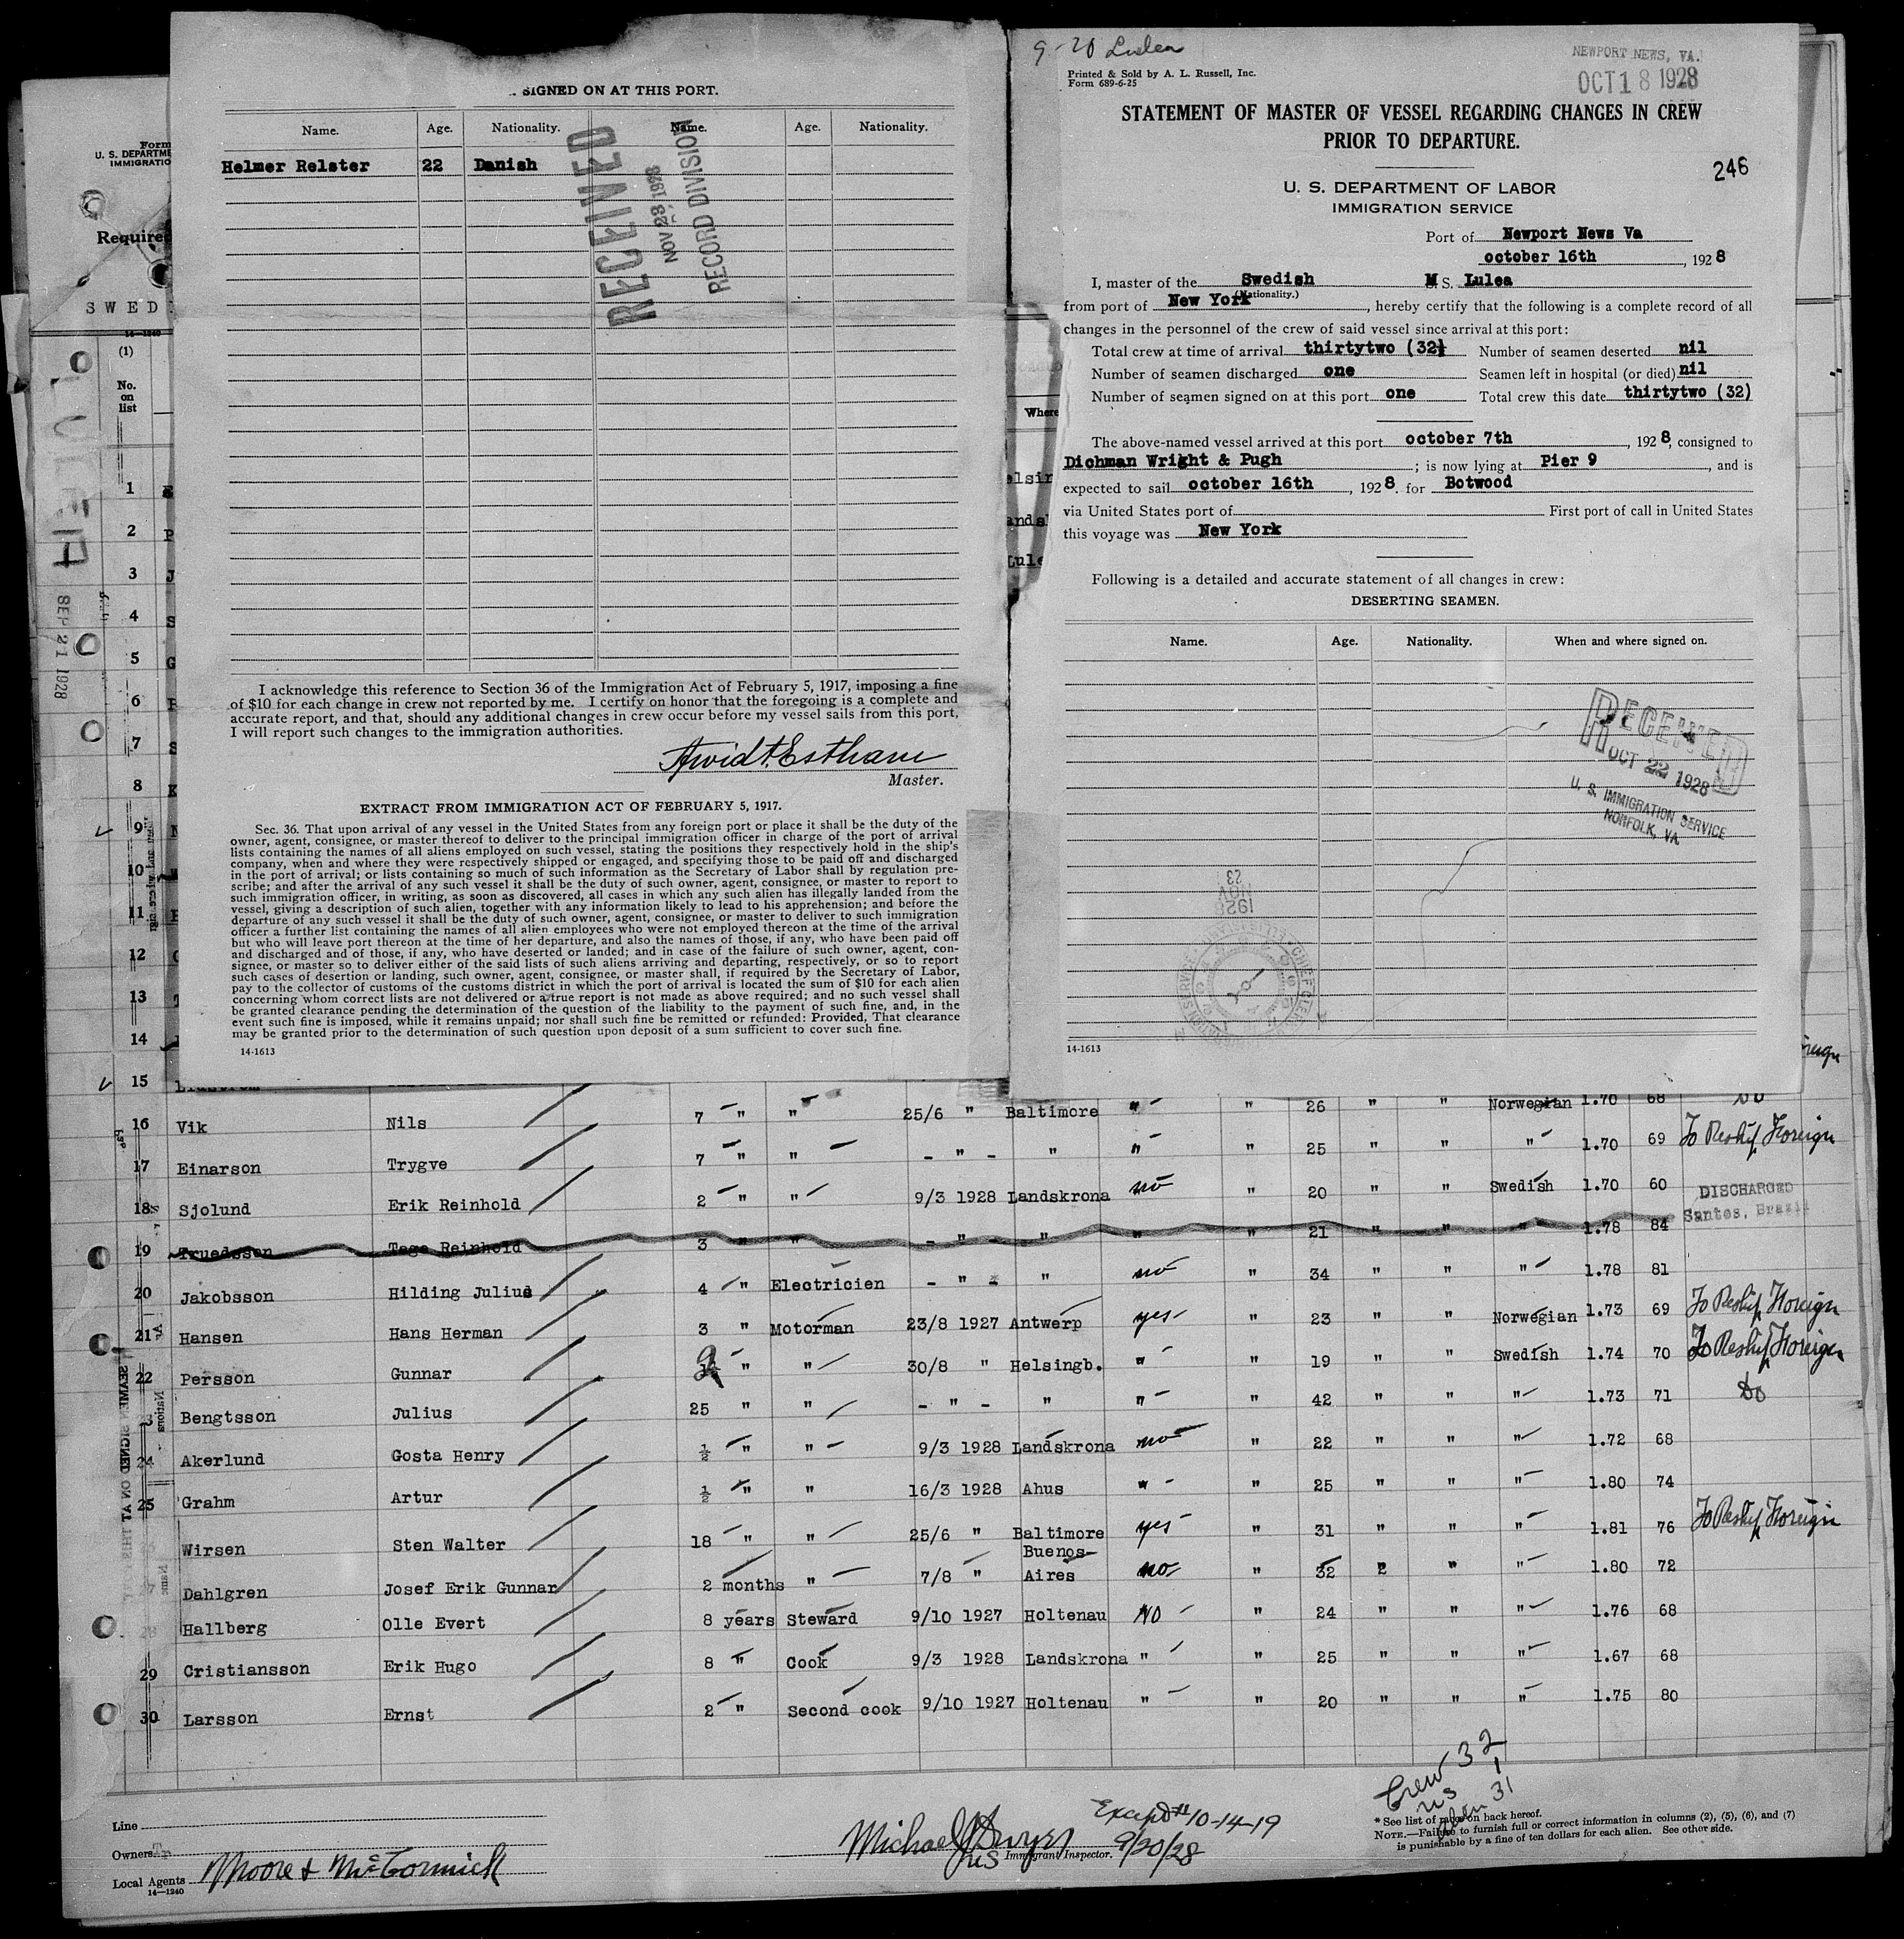 SIGNED ON AT THIS PORT.
Name. Age. Nationality. Name. Age. Nationality.
Helmer Relster 22 Danish
RECEIVED
NOV 23 1928
RECORD DIVISION
I acknowledge this reference to Section 36 of the Immigration Act of February 5, 1917, imposing a fine
of $10 for each change in crew not reported by me. I certify on honor that the foregoing is a complete and
accurate report, and that, should any additional changes in crew occur before my vessel sails from this port,
I will report such changes to the immigration authorities.
Master.
EXTRACT FROM IMMIGRATION ACT OF FEBRUARY 5, 1917.
Sec. 36. That upon arrival of any vessel in the United States from any foreign port or place it shall be the duty of the
owner, agent, consignee, or master thereof to deliver to the principal immigration officer in charge of the port of arrival
lists containing the names of all aliens employed on such vessel, stating the positions they respectively hold in the ship's
company, when and where they were respectively shipped or engaged, and specifying those to be paid off and discharged
in the port of arrival; or lists containing so much of such information as the Secretary of Labor shall by regulation pre-
scribe; and after the arrival of any such vessel it shall be the duty of such owner, agent, consignee, or master to report to
such immigration officer, in writing, as soon as discovered, all cases in which any such alien has illegally landed from the
vessel, giving a description of such alien, together with any information likely to lead to his apprehension; and before the
departure of any such vessel it shall be the duty of such owner, agent, consignee, or master to deliver to such immigration
officer a further list containing the names of all alien employees who were not employed thereon at the time of the arrival
but who will leave port thereon at the time of her departure, and also the names of those, if any, who have been paid off
and discharged and of those, if any, who have deserted or landed; and in case of the failure of such owner, agent, con-
signee, or master so to deliver either of the said lists of such aliens arriving and departing, respectively, or so to report
such cases of desertion or landing, such owner, agent, consignee, or master shall, if required by the Secretary of Labor,
pay to the collector of customs of the customs district in which the port of arrival is located the sum of $10 for each alien
concerning whom correct lists are not delivered or a true report is not made as above required; and no such vessel shall
be granted clearance pending the determination of the question of the liability to the payment of such fine, and, in the
event such fine is imposed, while it remains unpaid; nor shall such fine be remitted or refunded: Provided, That clearance
may be granted prior to the determination of such question upon deposit of a sum sufficient to cover such fine.
14-1613
9-20 Lulea
Printed & Sold by A. L. Russell, Inc.
Form 689-6-25
NEWPORT NEWS, VA.
OCT 18 1928
STATEMENT OF MASTER OF VESSEL REGARDING CHANGES IN CREW
PRIOR TO DEPARTURE.
246
U. S. DEPARTMENT OF LABOR
IMMIGRATION SERVICE
Port of Newport News Va
october 16th, 1928
I, master of the Swedish M S. Lulea
(Nationality.)
from port of New York, hereby certify that the following is a complete record of all
changes in the personnel of the crew of said vessel since arrival at this port:
Total crew at time of arrival thirtytwo (32) Number of seamen deserted nil
Number of seamen discharged one Seamen left in hospital (or died) nil
Number of seamen signed on at this port one Total crew this date thirtytwo (32)
The above-named vessel arrived at this port october 7th, 1928, consigned to
Dichman Wright & Pugh; is now lying at Pier 9, and is
expected to sail october 16th, 1928. for Botwood
via United States port of First port of call in United States
this voyage was New York
Following is a detailed and accurate statement of all changes in crew:
DESERTING SEAMEN.
Name. Age. Nationality. When and where signed on.
RECEIVED
OCT 22 1928
U. S. IMMIGRATION SERVICE
NORFOLK, VA.
1928
NOV
23
14-1613
Form
U. S. DEPARTME
IMMIGRATIO
Require
SWED
14-1240
(1)
No.
on
list
LULEA
SEP 21 1928
Where
elsin
andsk
Lule
1
2 P
3 J
4 S
5 G
6
7 S
8 K
9
10
11
12
13
14
15
16 Vik Nils 7 " " 25/6 " Baltimore " " 26 " " Norwegian 1.70 68 Do
17 Einarson Trygve 7 " " - " - " " " 25 " " " 1.70 69 To Reship Foreign
18 Sjolund Erik Reinhold 2 " " 9/3 1928 Landskrona no " 20 " " Swedish 1.70 60
DISCHARGED
Santos, Brazil
19 Truedsson Tage Reinhold 3 " " - " - " " " 21 " " " 1.78 84
20 Jakobsson Hilding Julius 4 " Electricien - " - " no " 34 " " " 1.78 81
21 Hansen Hans Herman 3 " Motorman 23/8 1927 Antwerp yes " 23 " " Norwegian 1.73 69 To Reship Foreign
22 Persson Gunnar " " 30/8 " Helsingb. " " 19 " " Swedish 1.74 70 To Reship Foreign
23 Bengtsson Julius 25 " " - " - " " " 42 " " " 1.73 71 Do
24 Akerlund Gosta Henry ½ " " 9/3 1928 Landskrona no " 22 " " " 1.72 68
25 Grahm Artur ½ " " 16/3 1928 Ahus " " 25 " " " 1.80 74
Wirsen Sten Walter 18 " " 25/6 " Baltimore yes " 31 " " " 1.81 76 To Reship Foreign
Dahlgren Josef Erik Gunnar 2 months " 7/8 " Buenos Aires no " 32 " " " 1.80 72
Hallberg Olle Evert 8 years Steward 9/10 1927 Holtenau NO " 24 " " " 1.76 68
29 Cristiansson Erik Hugo 8 " Cook 9/3 1928 Landskrona " " 25 " " " 1.67 68
30 Larsson Ernst 2 " Second cook 9/10 1927 Holtenau " " 20 " " " 1.75 80
Crew 32
US 1
Alien 31
Line
Owners
Local Agents Moore & McCormick
14-1240
Immigrant Inspector.
9/20/28
* See list of races on back hereof.
NOTE.—Failure to furnish full or correct information in columns (2), (5), (6), and (7)
is punishable by a fine of ten dollars for each alien. See other side.